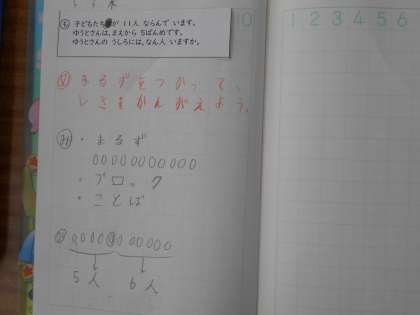 も 子どもたちが 11人 ならんで います。
ゆうとさんは、まえから 5ばんめです。
ゆうとさんの うしろには、なん人 いますか。
10
1 2 3 4 5 6
まるずをつかって、
しきをかんがえよう。
み ・まるず
・ブロック
・ことば
5人 6人